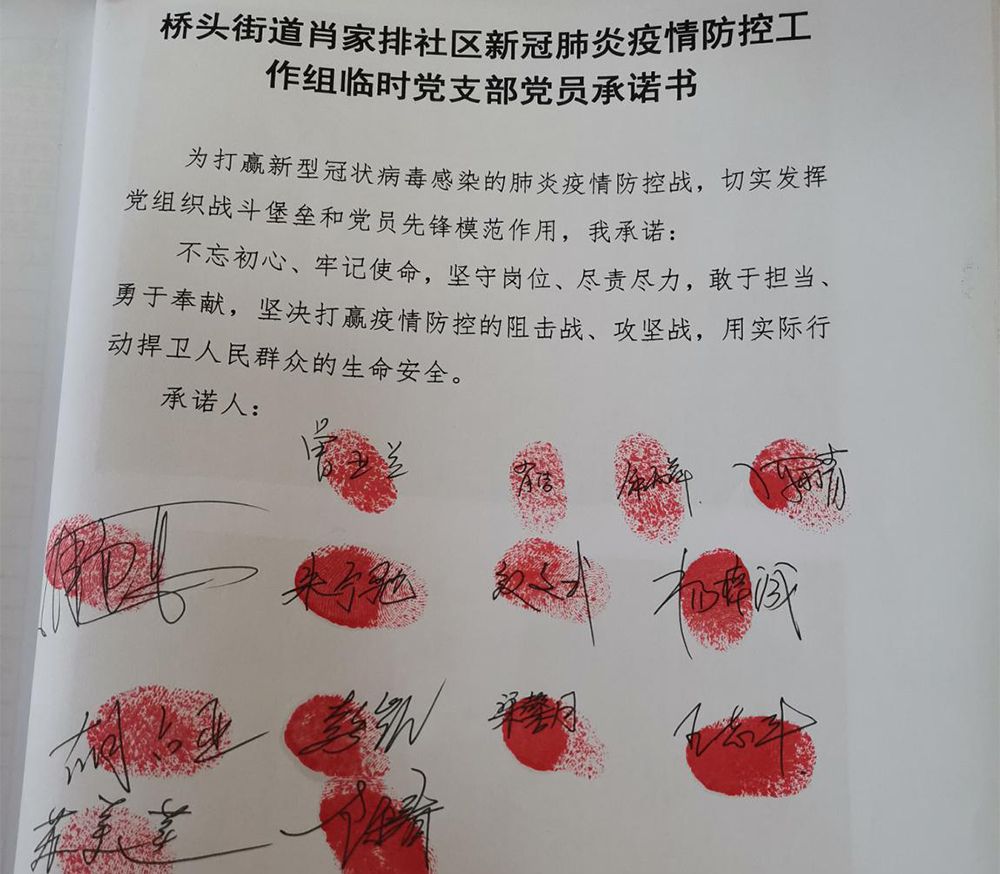 桥头街道肖家排社区新冠肺炎疫情防控工
作组临时党支部党员承诺书
为打赢新型冠状病毒感染的肺炎疫情防控战，切实发挥
党组织战斗堡垒和党员先锋模范作用，我承诺：
不忘初心、牢记使命，坚守岗位、尽责尽力，敢于担当、
勇于奉献，坚决打赢疫情防控的阻击战、攻坚战，用实际行
动捍卫人民群众的生命安全。
承诺人：
曾玉兰
梁馨月
苏美芝